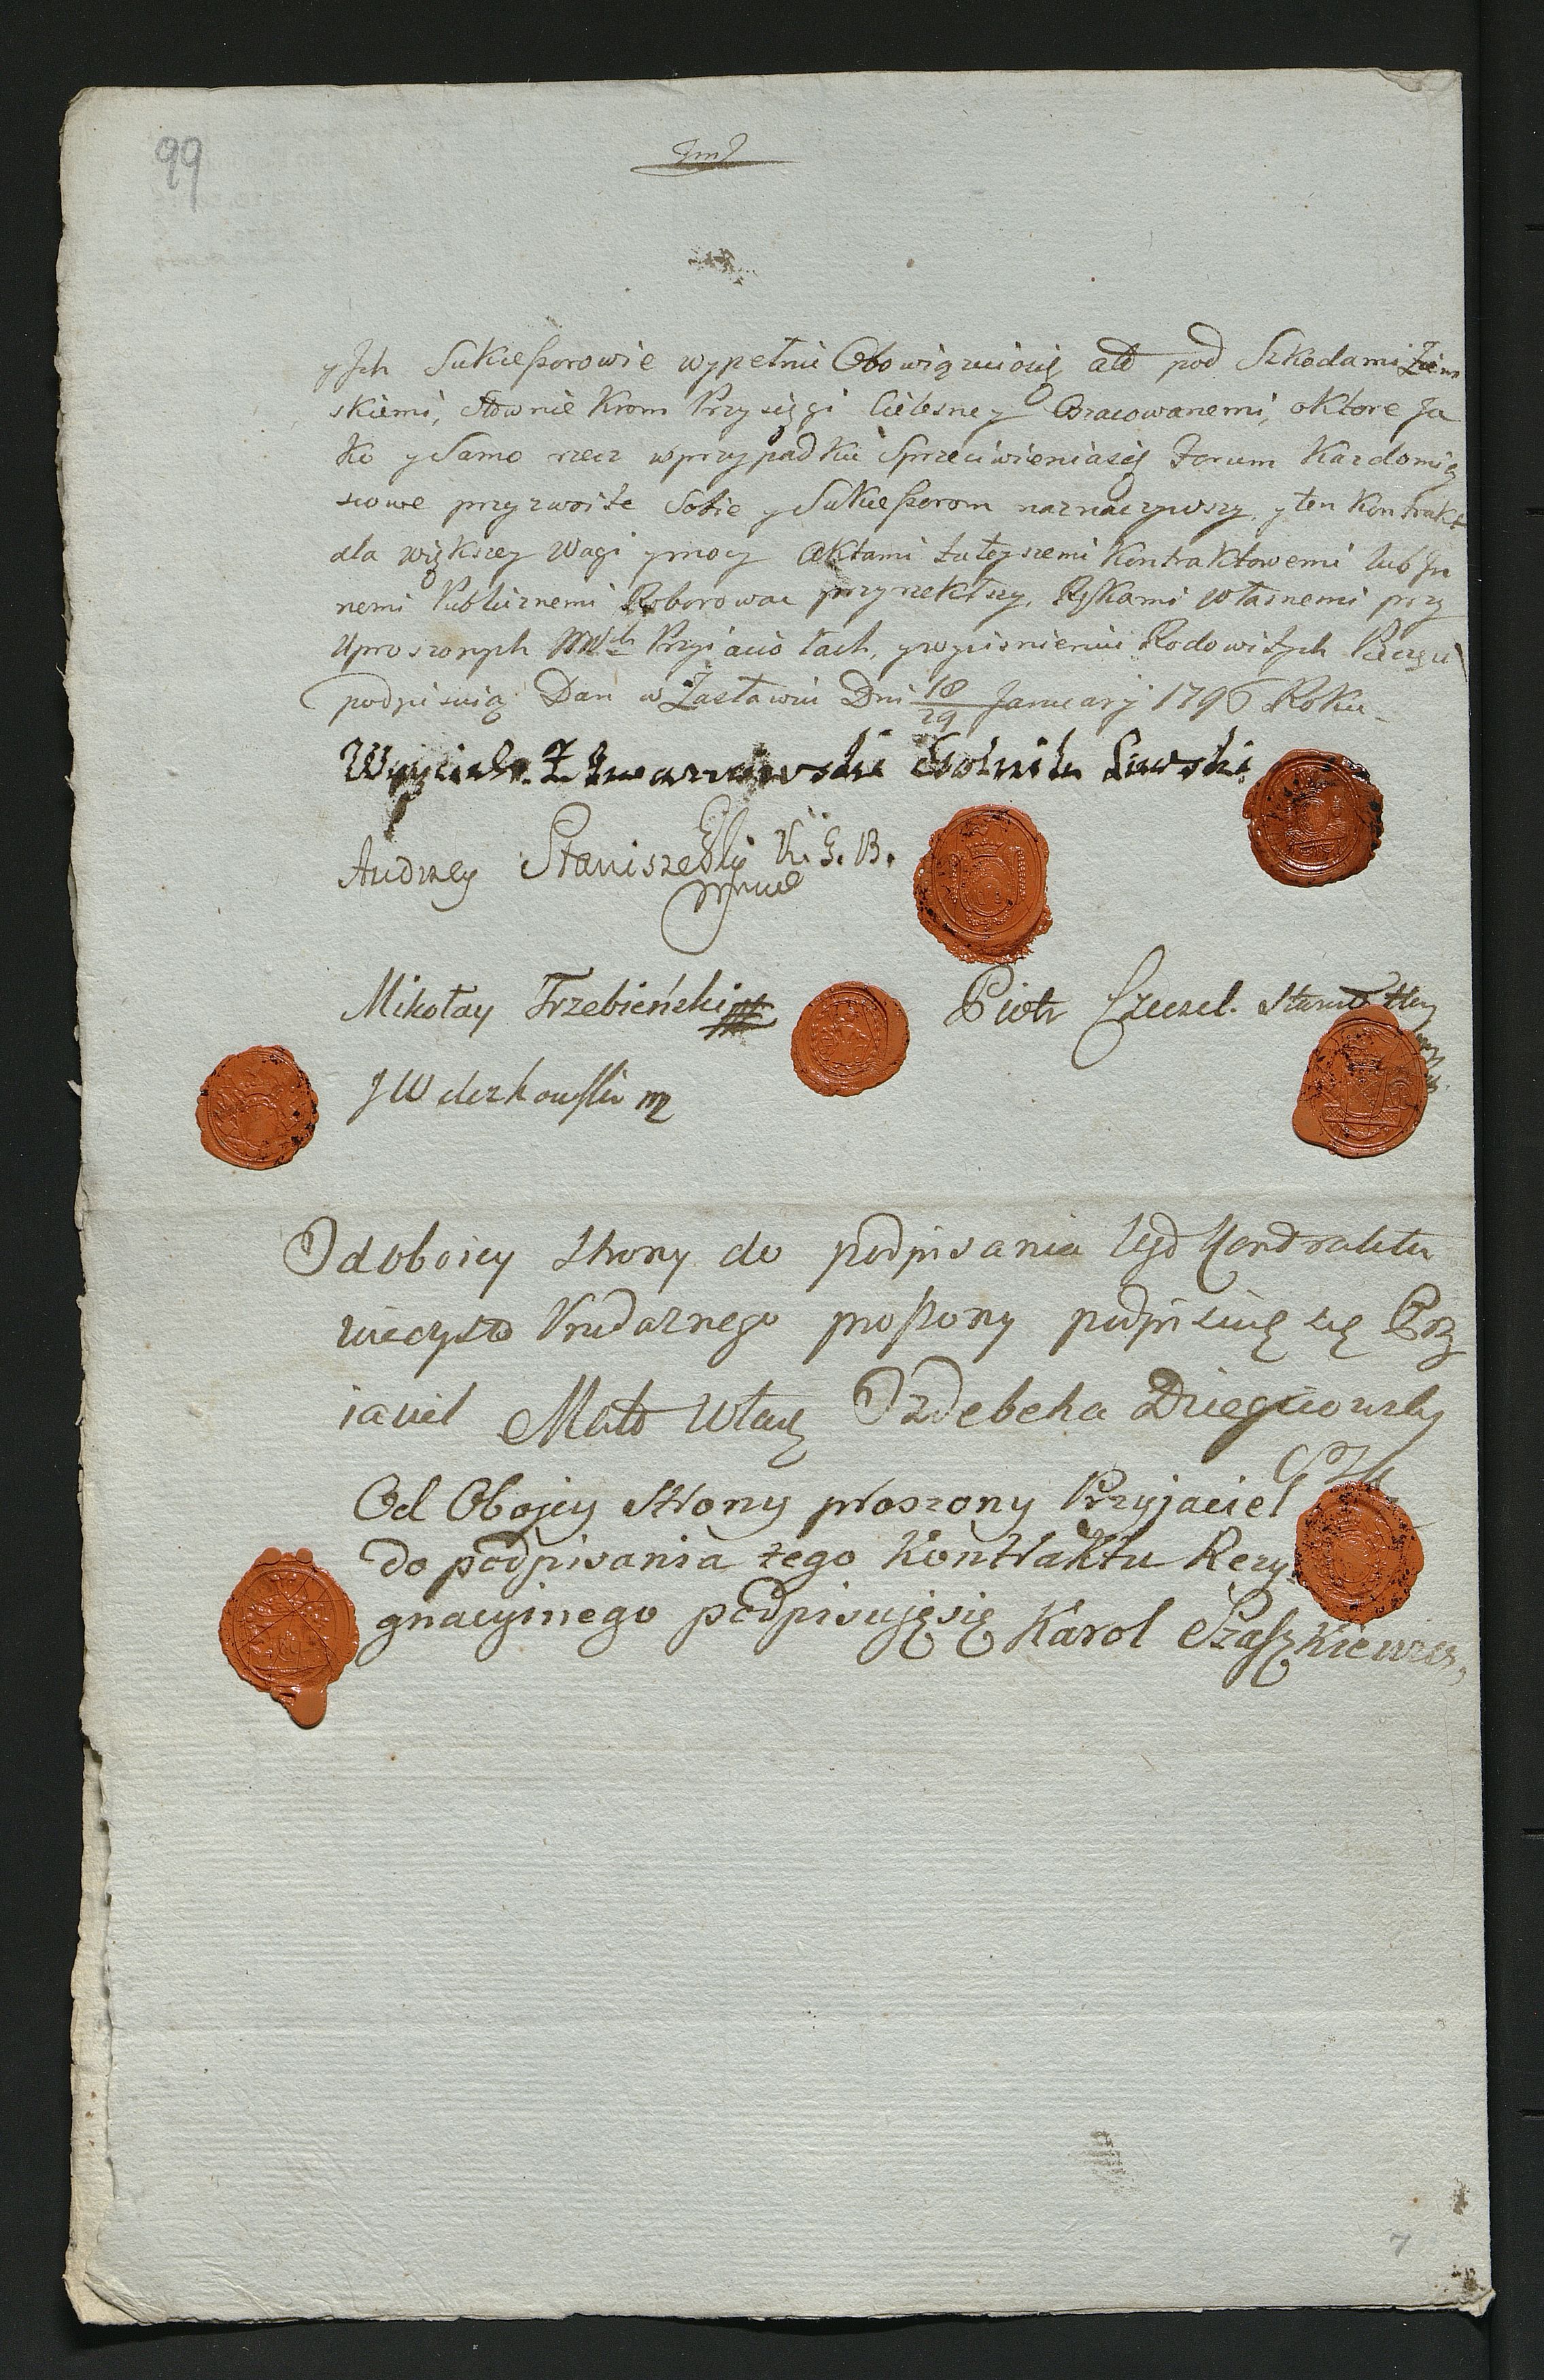 99
y Jch Sukceßorowie wypełnić Obowiązuiąsię a to pod Szkodami Ziem
skiemi, słownie krom Przysięgi Cielesney Oszacowanemi, o ktore Ja
ko y Samo rzecz w przypadku Sprzeciwieniasię Forum Kazdomie
scowe przyzwoite Sobie y Sukceßorom naznaczywszy, y ten Kontrakt
dla większey Wagi y mocy Aktami tuteyszemi Kontraktowemi lub In
nemi Publicznemi Roborować przyrzekłszy, Rękami własnemi przy
Uproszonych Przyiaciołach, y wyciśnieniu Rodowitych Pieczęci
podpisuią Dan w Zasławiu Dni 18/29 January 1796 Roku
Woyciech Ł Skarski
Andrzey Staniszewski K. G. B.
mpp
Mikołay Trzebieński
Piotr Czeczel
J W
Od oboiey strony do podpisania tego Kontraktu
wieczysto proßony podpisuię się Przy
iaciel Mało
Od Obojey strony proszony Przyjaciel
do podpisania tego Kontraktu Rezy
gnacyinego podpisuję się Karol Szaszkiewicz
7